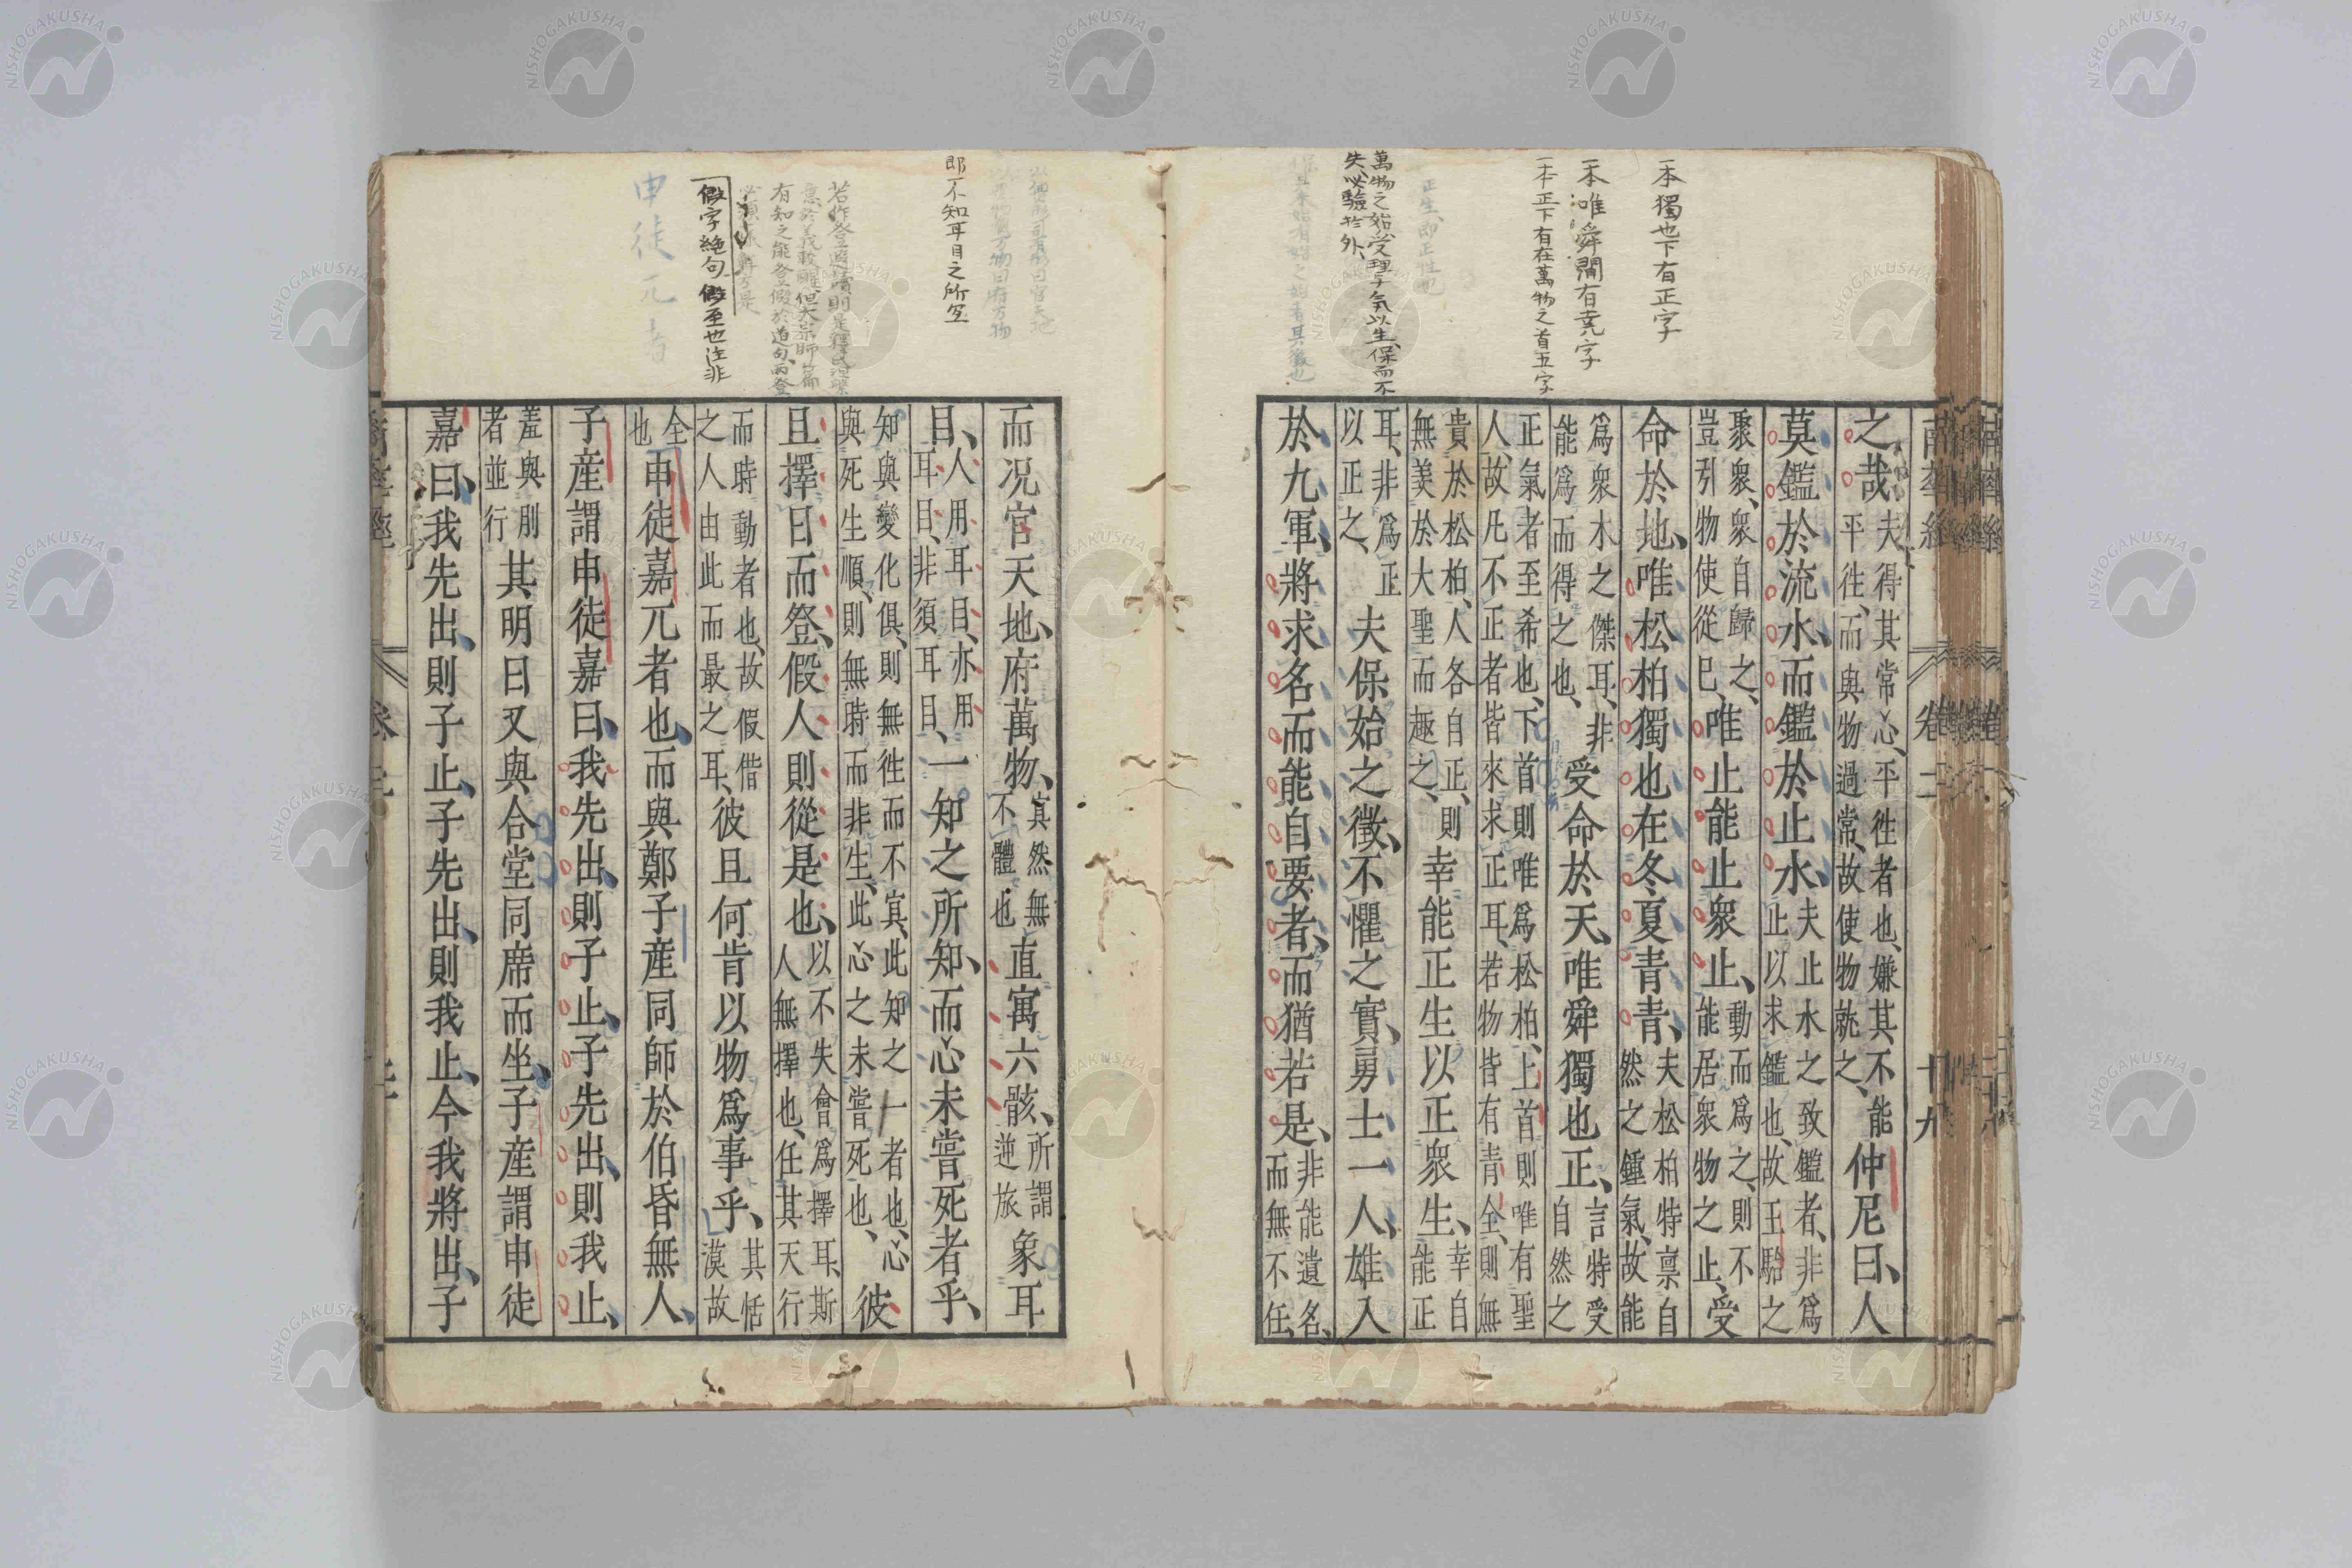 一本獨也下有正字
一本唯舜閒有堯字
一本正下有在萬物之首五字
正生即正性也
萬物之始受理与氣以生保而不
失必驗於外
即不知耳目之所宜
有知之能登假於道句而登
假字絶句假至也注非
申徒元者
之哉夫得其常心平徃者也嫌其不能
平徃而與物過常故使物就之
仲尼曰人
莫鑑於流水而鑑於止水夫止水之致鑑者非爲
止以求鑑也故王駘之
聚衆衆自歸之
豈引物使從已
唯止能止衆止動而爲之則不
能居衆物之止
受
命於地唯松柏獨也在冬夏青青夫松柏特禀自
然之鍾氣故能
爲衆木之傑耳非
能爲而得之也
受命於天唯舜獨也正言特受
自然之
正氣者至希也下首則唯爲松柏上首則唯有聖
人故凡不正者皆來求正耳若物皆有青全則無
貴於松柏人各自正則
無羡於大聖而趣之
幸能正生以正衆生幸自
能正
耳非爲正
以正之
夫保始之徵不懼之實勇士一人雄入
於九軍將求名而能自要者而猶若是非能遺名
而無不任
而况官天地府萬物冥然無
不體也
直寓六骸所謂
逆旅
象耳
目人用耳目亦用
耳目非須耳目
一知之所知而心未嘗死者乎
知與變化俱則無徃而不冥此知之一者也心
與死生順則無時而非生此心之未嘗死也
彼
且擇日而登假人則從是也以不失會爲擇耳斯
人無擇也任其天行
而時動者也故假借
之人由此而最之耳
彼且何肯以物爲事乎其恬
漠故
全
也
申徒嘉兀者也而與鄭子産同師於伯昏無人
子産謂申徒嘉曰我先出則子止子先出則我止
羞與刖
者並行
其明日又與合堂同席而坐子産謂申徒
嘉曰我先出則子止子先出則我止今我將出子
南華經
卷二
十九
NISHOGAKUSHA